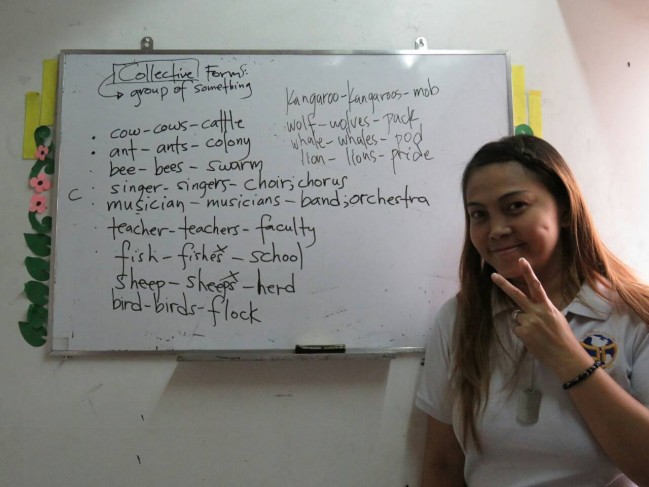 Collective Forms:
→ group of something
cow-cows-cattle
ant-ants-colony
bee-bees-swarm
singer-singers-choir;chorus
C musician-musicians-band;orchestra
teacher-teachers-faculty
fish-fishes-school
sheep-sheeps-herd
bird-birds-flock
Kangaroo-Kangaroos-mob
wolf-wolves-pack
whale-whales-pod
lion-lions-pride